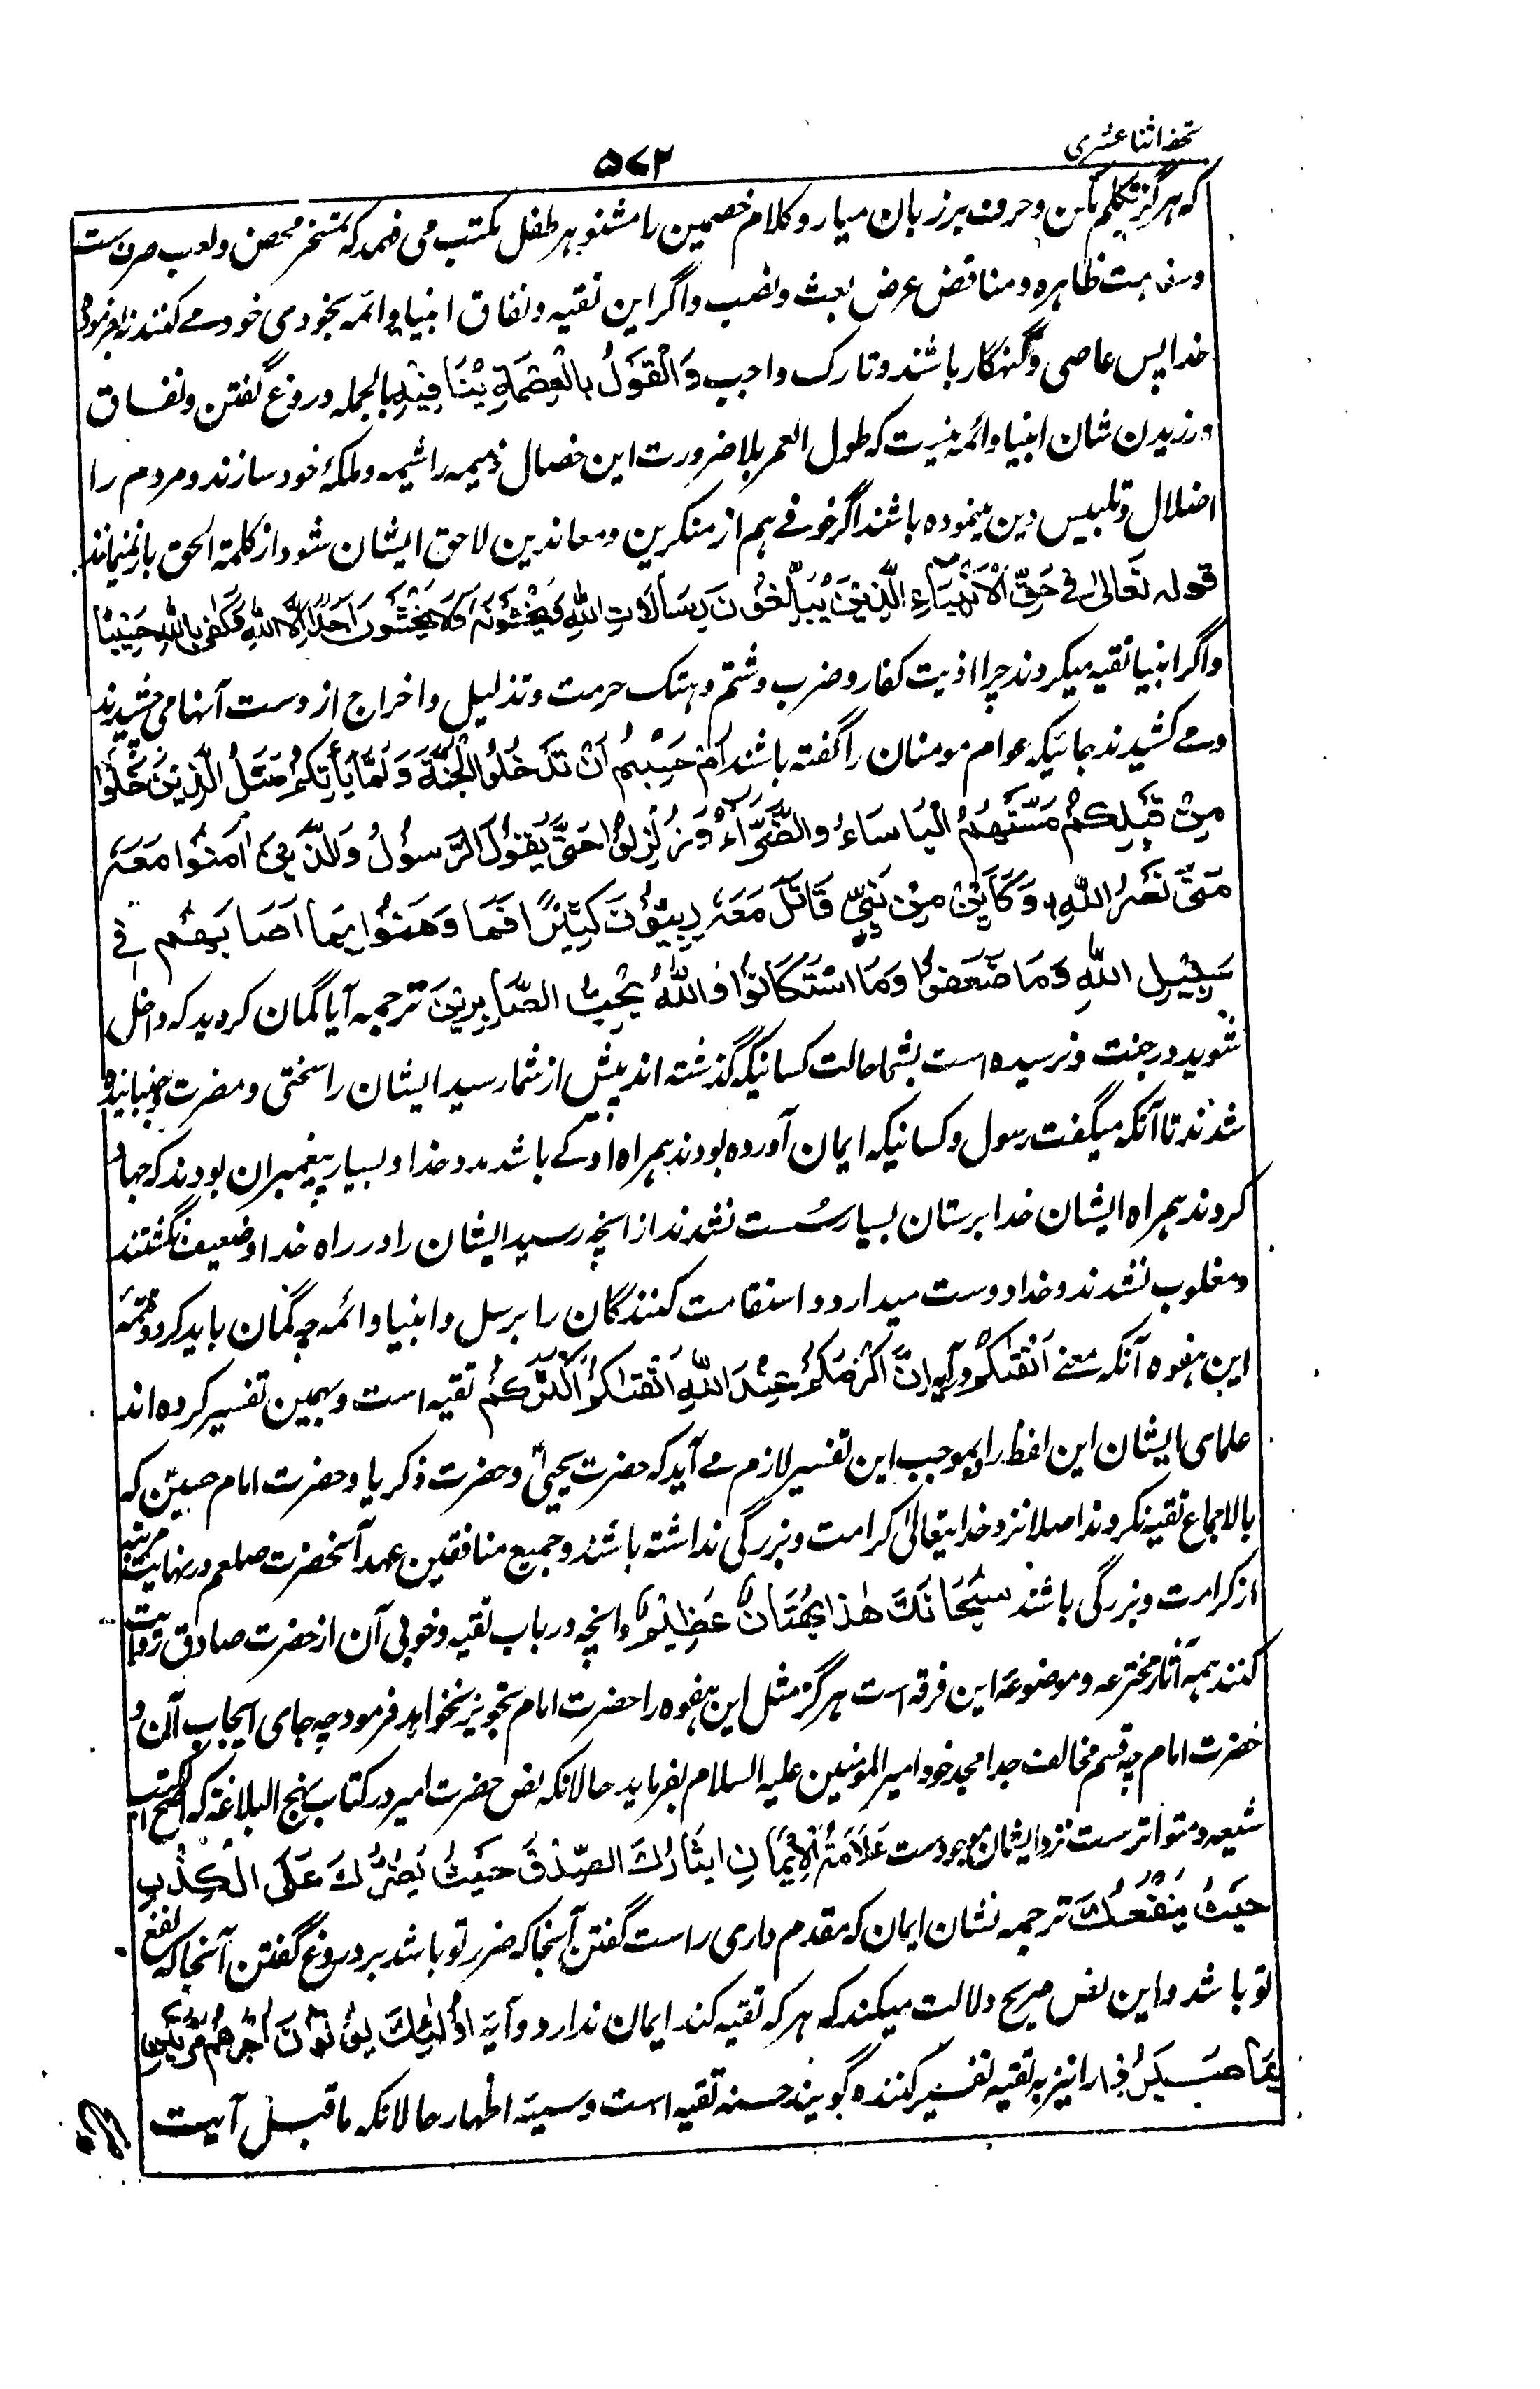 تحفه اثنا عشری
۵۷۲
که هرگز تکلم مکن و حرف بر زبان میار و کلام خصمین را مشنو هر طفل مکتب می فهمد که تمسخر محض و لعب صرف ست
و سفاهت ظاهره و مناقض عرض بعث و نصب و اگر این تقیه و نفاق انبیا و ائمه بخودی خود مے کنند نه بفرموده
خدا پس عاصی و گنهگار باشند و تارک واجب وَالْقَوْلُ بِالْعِصْمَةِ يُنَافِيْهِ بالجمله دروغ گفتن و نفاق
ورزیدن شان انبیا و ائمه نیست که طول العمر بلا ضرورت این خصال ذمیمه را شیمه و ملکهٔ خود سازند و مردم را
اضلال و تلبیس دین مینموده باشند اگر خوفے هم از منکرین و معاندین لاحق ایشان شود از کلمة الحق باز نمیمانند
قوله تَعَالٰی فی حَقِّ الْاَنْبِيَاءِ الَّذِيْنَ يُبَلِّغُوْنَ رِسَالَاتِ اللّٰهِ وَيَخْشَوْنَهٗ وَلَا يَخْشَوْنَ اَحَدًا اِلَّا اللّٰهَ وَكَفٰى بِاللّٰهِ حَسِيْبًا
و اگر انبیا تقیه میکردند چرا اذیت کفار و ضرب و شتم و هتک حرمت و تذلیل و اخراج از دست آنها می چشیدند
و مے کشیدند بجائیکه عوام مومنان را گفته باشند اَمْ حَسِبْتُمْ اَنْ تَدْخُلُوا الْجَنَّةَ وَلَمَّا يَأْتِكُمْ مَثَلُ الَّذِيْنَ خَلَوْا
مِنْ قَبْلِكُمْ مَسَّتْهُمُ الْبَاسَاءُ وَالضَّرَّاءُ وَزُلْزِلُوْا حَتّٰى يَقُوْلَ الرَّسُوْلُ وَالَّذِيْنَ اٰمَنُوْا مَعَهٗ
مَتٰى نَصْرُ اللّٰهِ وَكَأَيِّنْ مِنْ نَبِيٍّ قَاتَلَ مَعَهٗ رِبِّيُّوْنَ كَثِيْرًا فَمَا وَهَنُوْا لِمَا اَصَابَهُمْ فِيْ
سَبِيْلِ اللّٰهِ وَمَا ضَعُفُوْا وَمَا اسْتَكَانُوْا وَاللّٰهُ يُحِبُّ الصَّابِرِيْنَ ترجمه آیا گمان کردید که داخل
شوید در جنت و نرسیده است بشما حالت کسانیکه گذشته اند پیش از شما رسید ایشان را سختی و مضرت و جنبانیده
شدند تا آنکه میگفت رسول و کسانیکه ایمان آورده بودند همراه او کے باشد مدد خدا و بسیار پیغمبران بودند که جهاد
کردند همراه ایشان خدا پرستان بسیار سُست نشدند از انچه رسید ایشان را در راه خدا و ضعیف نگشتند
و مغلوب نشدند و خدا دوست میدارد و استقامت کنندگان را برسل و انبیا و ائمه چه گمان باید کرد و تتمه
این هفوه آنکه معنے اَتْقٰكُمْ در آیه اِنَّ اَكْرَمَكُمْ عِنْدَ اللّٰهِ اَتْقٰكُمْ اَكْثَرُكُمْ تقیه است و همین تفسیر کرده اند
علمای ایشان این لفظ را و بموجب این تفسیر لازم مے آید که حضرت یحییٰ و حضرت ذکریا و حضرت امام حسین که
بالاجماع تقیه نکردند اصلا نزد خدایتعالیٰ کرامت و بزرگی نداشته باشند و جمیع منافقین عهد آنحضرت صلعم در نهایت مرتبه
از کرامت و بزرگی باشند سُبْحَانَكَ هٰذَا بُهْتَانٌ عَظِيْمٌ و انچه در باب تقیه و خوبی آن از حضرت صادق روایت
کنند همه آثار مخترعه و موضوعهٔ این فرقه است هرگز مثل این هفوه را حضرت امام تجویز نخواهد فرمود چه جای ایجاب آن و
حضرت امام چه قسم مخالفت جد امجد خود امیرالمومنین علیه السلام بفرماید حالانکه نص حضرت امیر در کتاب نهج البلاغة که اصح الکتب
شیعه و متواترست نزد ایشان موجودست عَلَامَةُ الْاِيْمَانِ اِيْثَارُكَ الصِّدْقَ حَيْثُ يَضُرُّكَ عَلَى الْكِذْبِ
حَيْثُ يَنْفَعُكَ ترجمه نشان ایمان که مقدم داری راست گفتن آنجا که ضرر تو باشد بر دروغ گفتن آنجا که نفع
تو باشد و این نص صریح دلالت میکند که هر که تقیه کند ایمان ندارد و آیه اُولٰئِكَ يُؤْتَوْنَ اَجْرَهُمْ مَرَّتَيْنِ
بِمَا صَبَرُوْا را نیز به تقیه تفسیر کننده گویند حسنه تقیه است و سیئه اظهار حالانکه ماقبل آیت